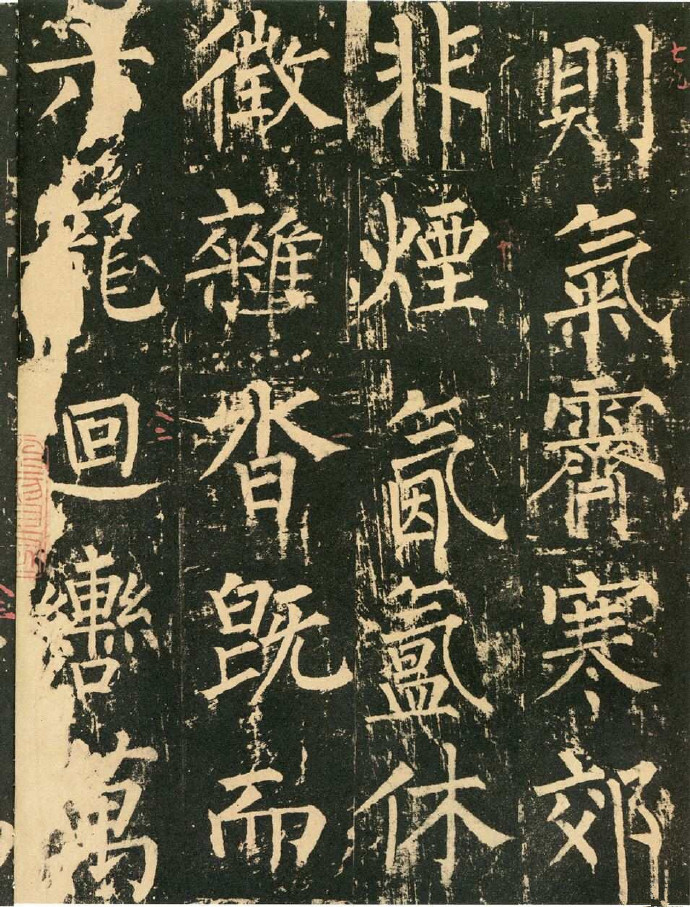 則氣霽寒郊
非煙氤氳休
徵雜沓旣而
六龍迴轡萬